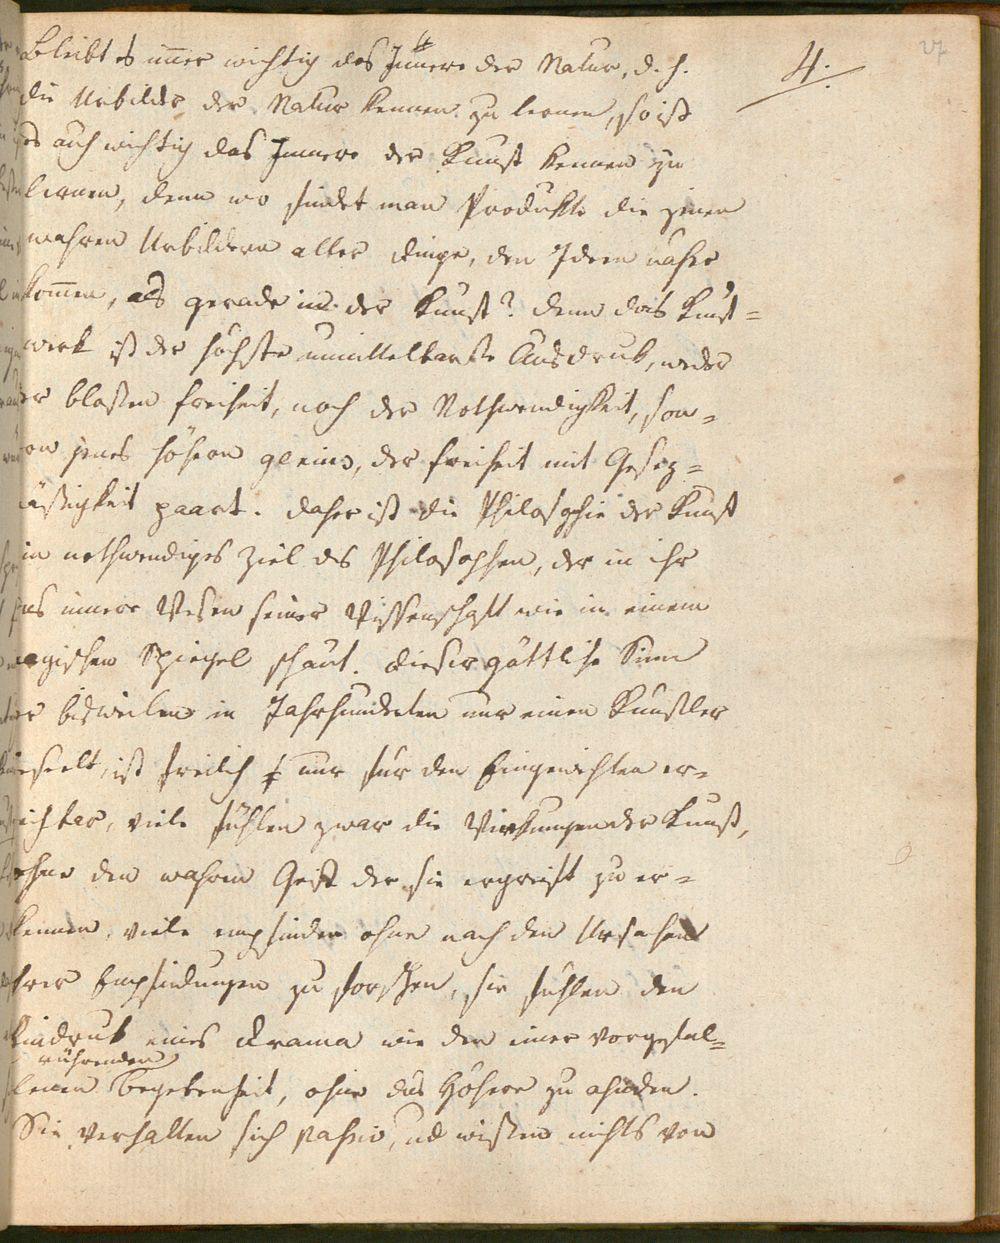 27
4.
Bleibt es im̅er wichtig das Innere der Natur, d. h.
die Urbilder der Natur kennen zu lernen, so ist
es auch wichtig das Innere der Kunst kennen zu
lernen, denn wo findet man Produkte die jenen
wahren Urbildern aller Dinge, den Ideen näher
kom̅en, als gerade in der Kunst? denn das Kunst=
werk ist der höchste unmittelbarste Ausdruk, weder
der bloßen Freiheit, noch der Nothwendigkeit, son=
ern jenes höhern Genius, der Freiheit mit Gesez=
äßigkeit paart. Daher ist die Philosophie der Kunst
in nothwendiges Ziel des Philosophen, der in ihr
as innere Wesen seiner Wissenschaft wie in einem
magischen Spiegel schaut. Dieser göttliche Sinn
er bisweilen in Jahrhunderten nur einen Künstler
beseelt, ist freilich nur für den Eingeweihten er=
eichbar, viele fühlen zwar die Wirkungen der Kunst,
ohne den wahren Geist der sie ergreift zu er=
kennen, viele empfinden ohne nach den Ursachen
ihrer Empfindungen zu forschen, sie fühlen den
Eindruk eines Drama wie den einer vorgefal=
rührenden
lenen Begebenheit, ohne das Höhere zu ahnden.
Sie verhalten sich passiv, ud wissen nichts von